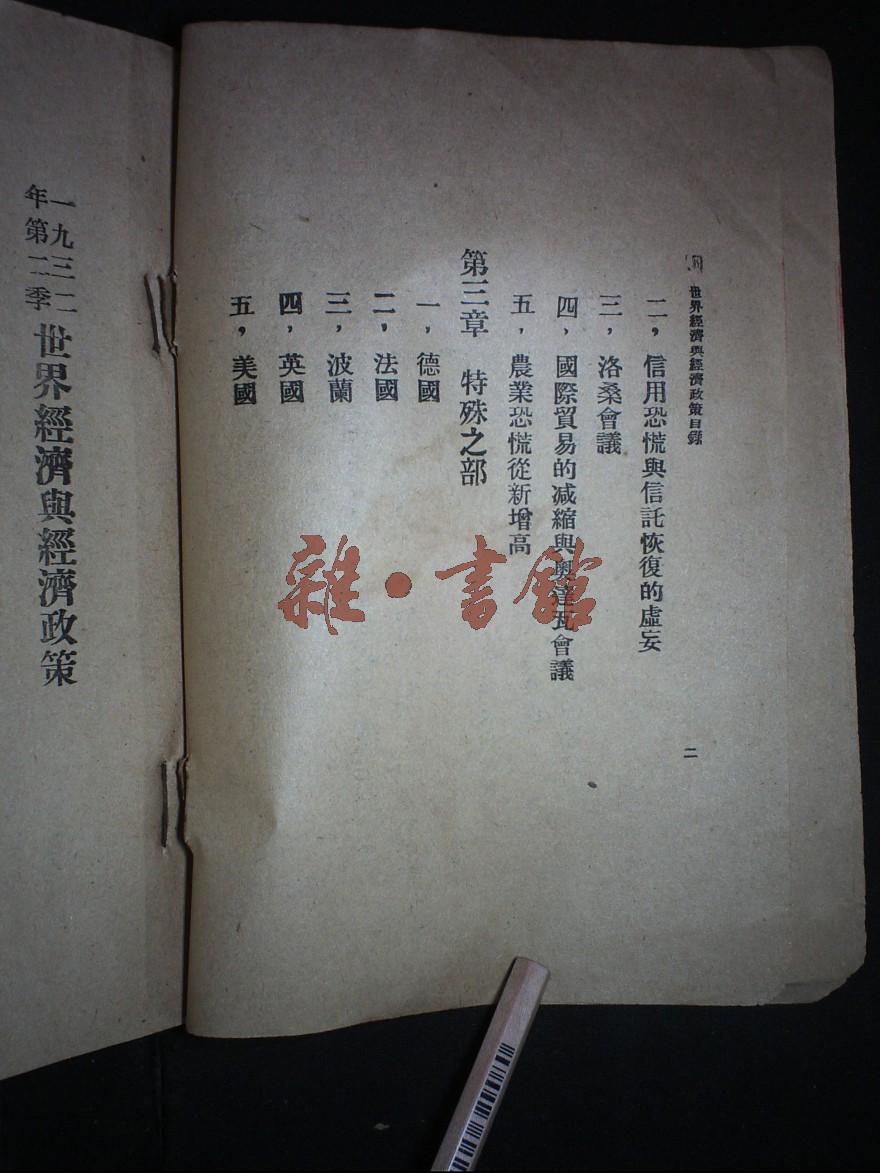 世界經濟與經濟政策目錄
二
二，信用恐慌與信託恢復的虛妄
三、洛桑會議
四、國際貿易的减縮與奧達瓦會議
五，農業恐慌從新增高
第三章 特殊之部
一，德國
二，法國
三，波蘭
四，英國
五，美國
一九三二
年第二季
世界經濟與經濟政策
雜·書館